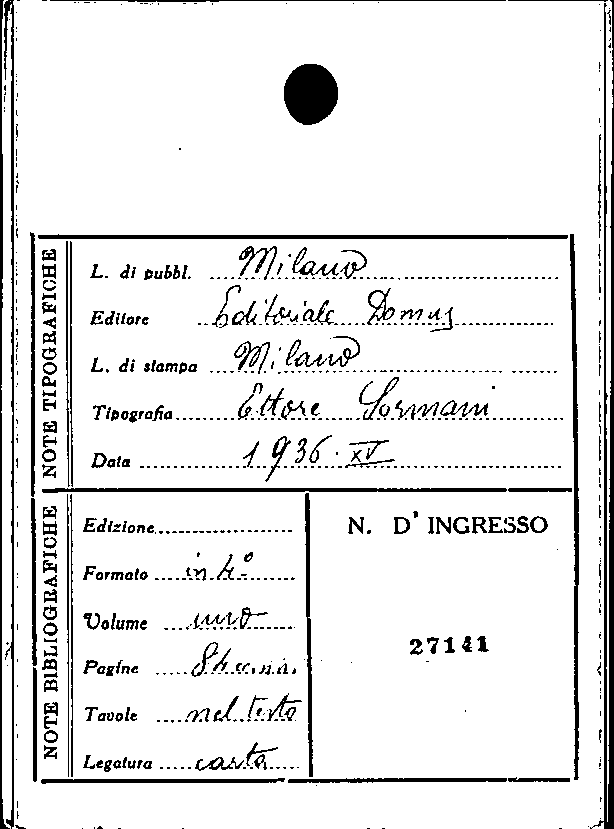 NOTE TIPOGRAFICHE
L. di pubbl. Milano
Editore Editoriale Domus
L. di stampa Milano
Tipografia Ettore Sormani
Data 1936. XV
NOTE BIBLIOGRAFICHE
Edizione
Formato in 4º
Volume uno
Pagine
Tavole nel testo
Legatura carta
N. D' INGRESSO
27141